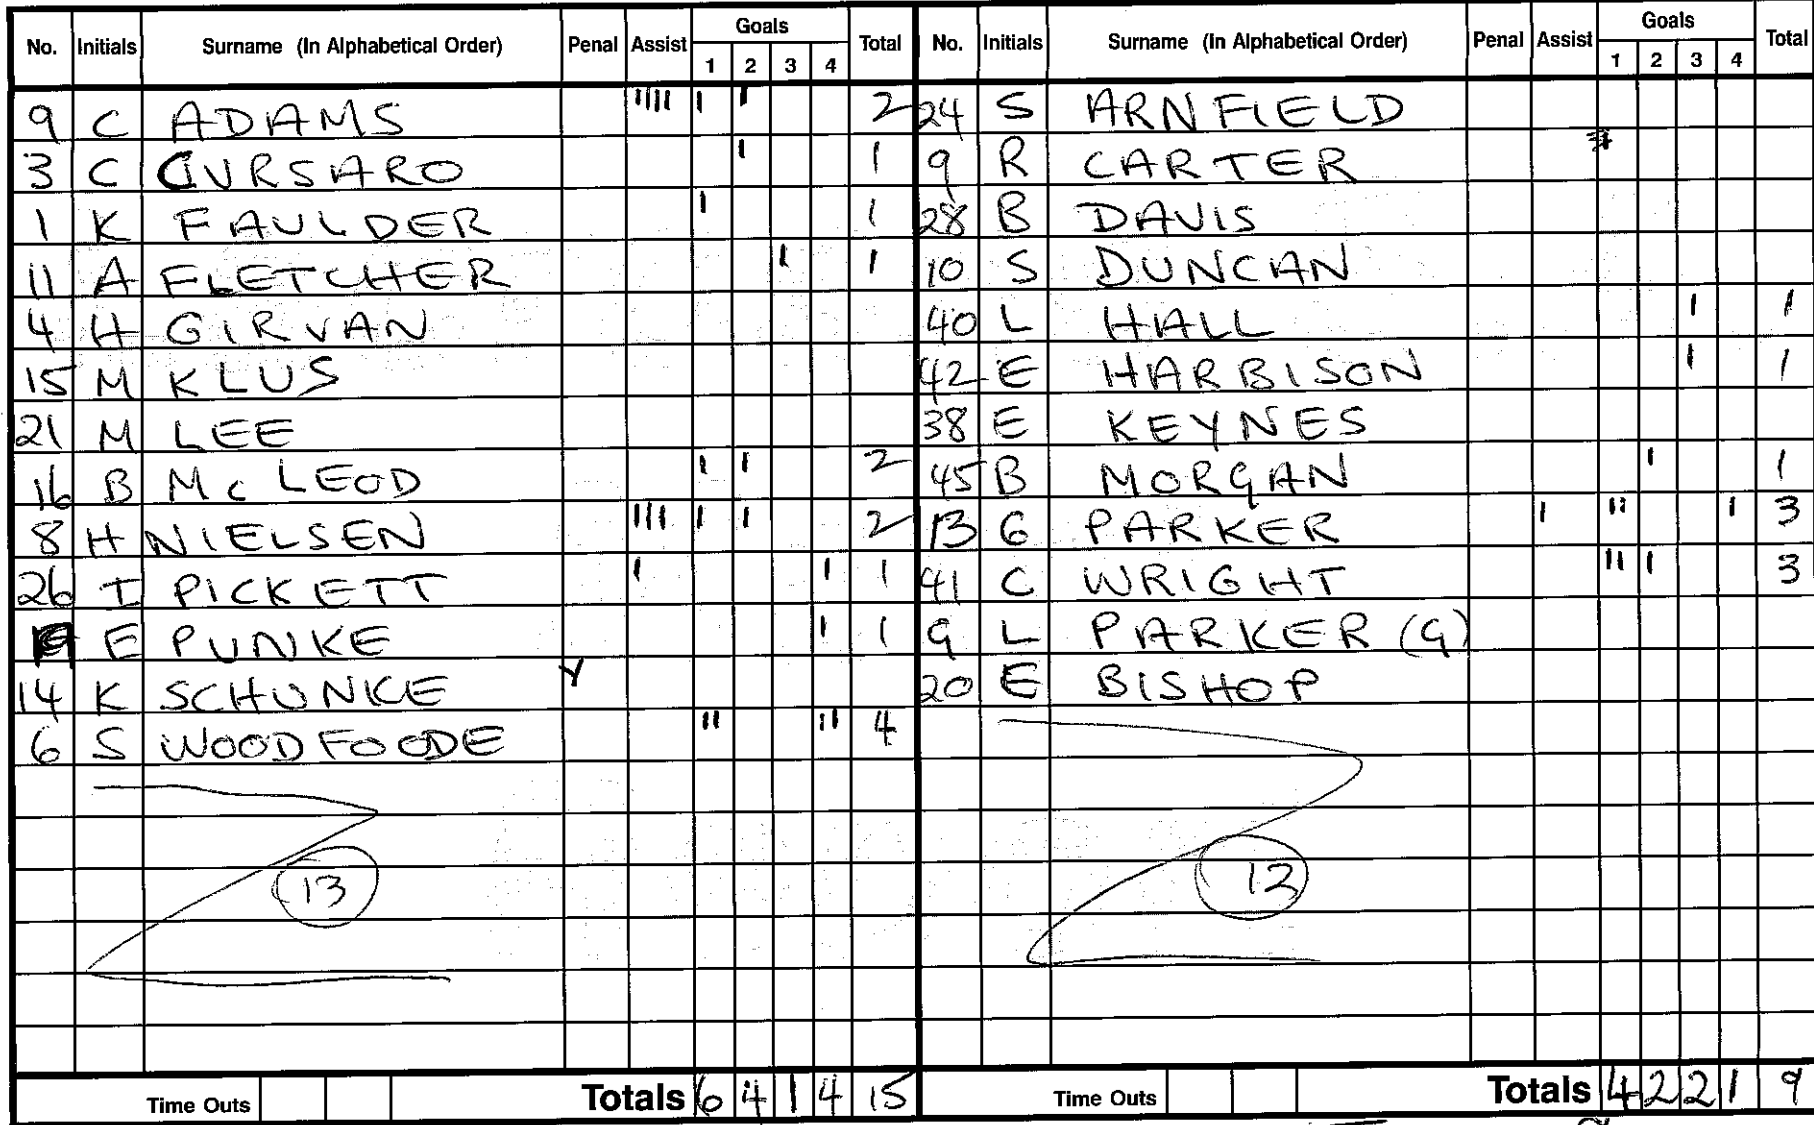 No. Initials Surname (In Alphabetical Order) Penal Assist Goals 1 2 3 4 Total
9 C ADAMS IIII I I 2
3 C CURSARO I 1
1 K FAULDER I 1
11 A FLETCHER I 1
4 H GIRVAN
15 M KLUS
21 M LEE
16 B McLEOD I I 2
8 H NIELSEN IIII I I 2
26 I PICKETT I I 1
E PUNKE I 1
14 K SCHUNKE Y
6 S WOODFOODE II II 4
13
Time Outs Totals 6 4 1 4 15
No. Initials Surname (In Alphabetical Order) Penal Assist Goals 1 2 3 4 Total
24 S ARNFIELD
9 R CARTER
28 B DAVIS
10 S DUNCAN
40 L HALL I 1
42 E HARBISON I 1
38 E KEYNES
45 B MORGAN I 1
13 G PARKER I II I 3
41 C WRIGHT II I 3
9 L PARKER (G)
20 E BISHOP
12
Time Outs Totals 4 2 2 1 9